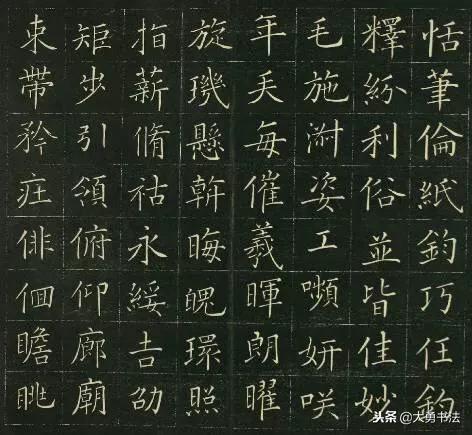 恬筆倫紙鈞巧任釣
釋紛利俗並皆佳妙
毛施淑姿工嚬妍咲
年矢每催羲暉朗曜
旋璣懸斡晦魄環照
指薪脩祜永綏吉劭
矩步引領俯仰廊廟
束帶矜莊俳佪瞻眺
头条 @大勇书法